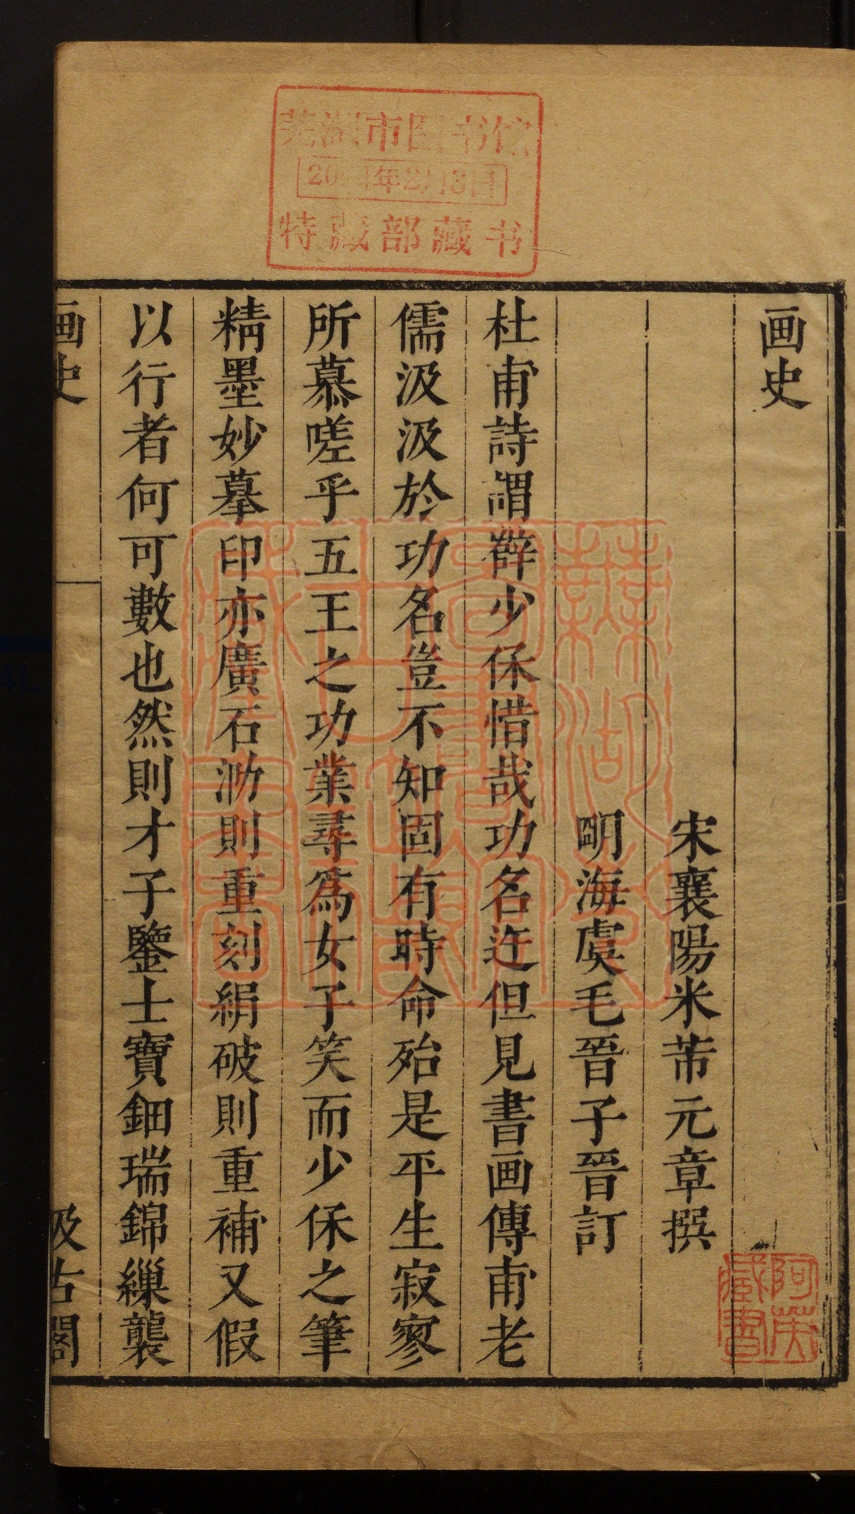 画史
宋襄陽米芾元章撰
明海虞毛晉子晉訂
杜甫詩謂薛少保惜哉功名迕但見書画傳甫老
儒汲汲於功名豈不知固有時命殆是平生寂寥
所慕嗟乎五王之功業尋爲女子笑而少保之筆
精墨妙摹印亦廣石泐則重刻絹破則重補又假
以行者何可數也然則才子鑒士寶鈿瑞錦繅襲
画史
汲古閣
芜湖市图书馆
特藏部藏书
阿英藏書